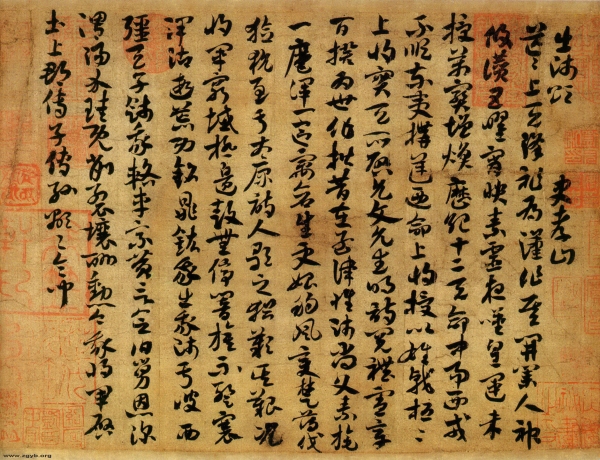 出師頌 史孝山
茫茫上天降祚為漢作基開業人神
攸讚五曜宵映素靈夜歎皇運未
授萬寶增煥歷紀十二天命中易西戎
不順東夷構逆乃命上將授以雄戟桓桓
上將實天所啟允文允武明詩閱禮憲章
百揆為世作楷昔在孟津惟師尚父素旄
一麾渾一區宇蒼生更始朔風變楚薄伐
獫狁至于太原詩人歌之猶歎其艱況
我將軍窮城極邊鼓無停響旗不蹔褰
澤沾遐荒功銘鼎鉉我出我師于彼西
疆天子餞我輅車乘黃言念伯舅恩深
渭陽介珪既削裂壤酬勳今我將軍啟
土上郡傳子傳孫顯顯令問
www.zgyb.org